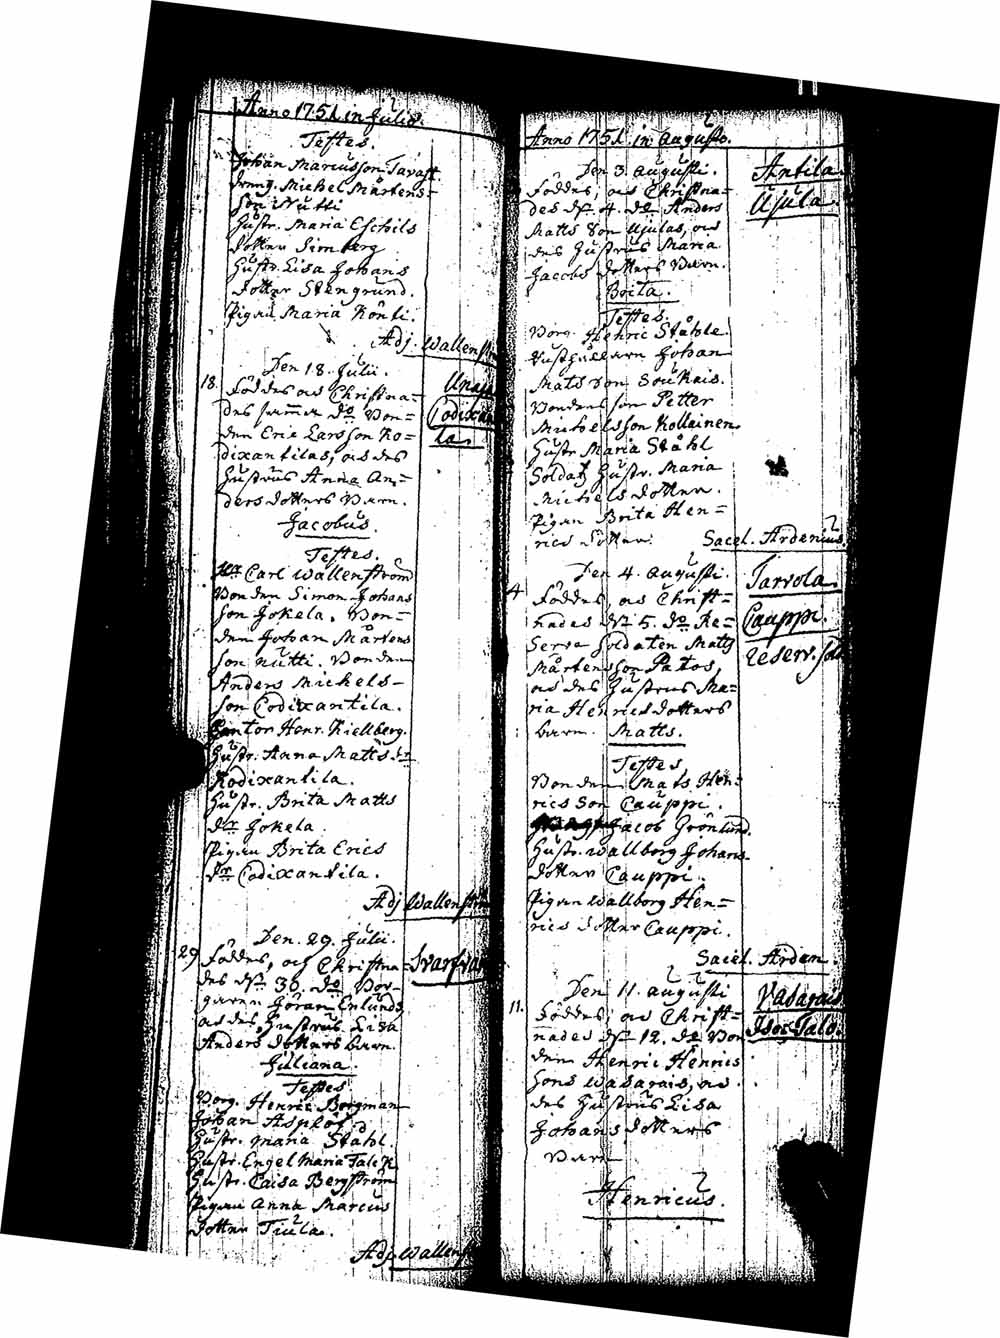 Anno 1751 in Julio.
Testes.
Johan Marcusson Tavast
Dräng. Michel Mårtens-
son Nutti
Hustr. Maria Eschils
dotter Simberg
Hustr. Lisa Johans
dotter Stengrund.
Pigan Maria Könti.
Adj. Wallenström
Den 18. Julii.
18. Föddes, och Christna-
des samma do Bon-
den Eric Larsson Ko-
dixantilas, och des
Hustrus Anna An-
ders dotters Barn.
Jacobus.
Unaja
Codixan
la.
Testes.
Hr Carl Wallenström
Bonden Simon Johans
son Jokela. Bon-
den Johan Mårtens
son Nutti. Bonden
Anders Mickels-
son Codixantila.
Cantor Henr. Kiellberg.
Hustr. Anna Matts dr
Kodixantila.
Hustr. Brita Matts
dr Jokela.
Pigan Brita Erics
dr Codixantila.
Adj Wallenström
Den. 29. Julii.
29 Föddes, och Christna-
des dn 30. do Bor-
garen Göran Enlunds
och des Hustrus Lisa
Anders dotters barn.
Juliana.
Svarfvar
Testes
Borg. Henric Borgman
Johan Asplöf
Hustr. Maria Stahl.
Hustr. Engel Maria Falck
Hustr. Caisa Bergström
Pigan Anna Marcus
dotter Tiula.
Adj. Wallens
Anno 1751 in Augusto.
Den 3. Augusti.
Föddes, och Christna-
des dn 4. do Anders
Matts Son Ujulas, och
des Hustrus Maria
Jacobs dotters Barn.
Brita.
Antila
Ujula.
Testes.
Borg. Henric Ståhle
Rusthållaren Johan
Mats Son Soukais.
Bonden son Petter
Michelsson Kollainen
Hustr Maria Ståhl
Soldatz Hustr. Maria
Michels dotter.
Pigan Brita Hen-
rics dotter.
Sacel. Ardenius.
Den 4. Augusti.
4 Föddes, och Christ-
nades dn 5. do Re-
serve Soldaten Matts
Mårtensson Patos,
och des Hustrus Ma-
ria Henrics dotters
barn. Matts.
Tarvola
Cauppi.
reserv. sold
Testes
Bonden Mats Hen-
rics Son Cauppi.
Jacob Grönlund.
Hustr. Wallborg Johans
dotter Cauppi.
Pigan Wallborg Hen-
rics dotter Cauppi.
Sacel. Arden.
Den 11. Augusti
11. Föddes, och Christ-
nades dn 12. do Bon
den Henric Henrics
Sons Wasarais, och
des Hustrus Lisa
Johans dotters
Barn
Henricus.
Vasarais
Isoo-Talo.